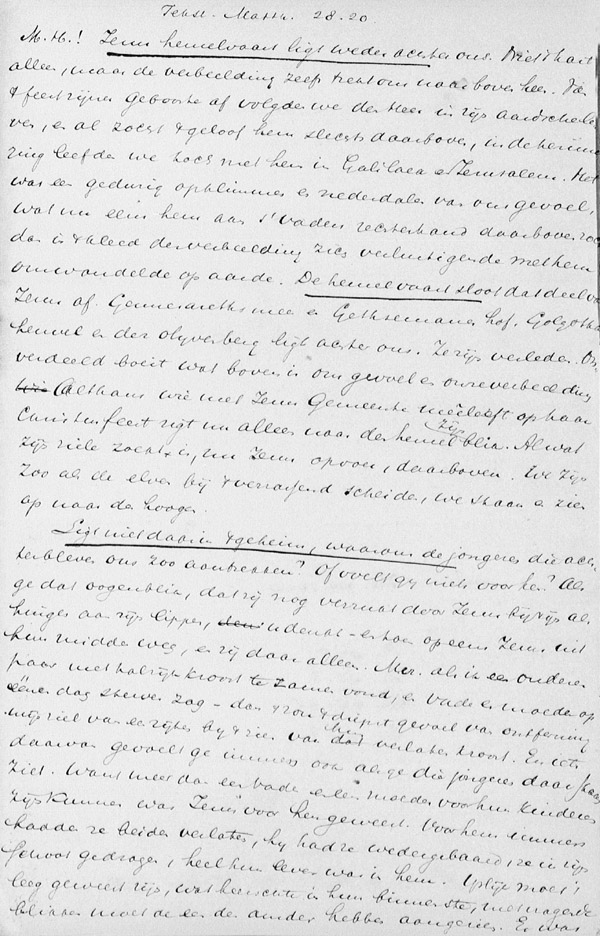 Tekst. Matth. 28.20
M.H.! Jezus hemelvaart ligt weder achter ons. Niet 't hart
alleen, maar de verbeelding zelf trekt ons naar boven heen. Van
't feest zijner geboorte af volgden we den Heer in zijn aardsche le
ven, en al zocht 't geloof hem steeds daarboven, in de herinne
ring leefden we toch met hem in Galilaea en Jeruzalem. Het
was een gedurig opklimmen en nederdalen van ons gevoel,
wat nu eens hem aan 's Vaders rechterhand daarboven zocht
dan in 't kleed der verbeelding zich verlustigende met hem
omwandelde op aarde. De hemelvaart sloot dat deel van
Jezus af. Gennesareths meer en Gethsemané's hof, Golgotha's
heuvel en de olijfberg ligt achter ons. Ze zijn verleden. On
verdeeld boeit wat boven is ons gevoel en onze verbeelding
Althans wie met Jezus Gemeente meêleeft op haar
Christenfeest rigt nu alleen naar den hemel zijn blik. Al wat
zijn ziele zocht is, nu Jezus opvoer, daarboven. We zijn
zoo als de elven bij 't verrassend scheiden, we staan en zien
op naar den hoogen.
Ligt niet daarin 't geheim, waarom de jongeren die ach
terbleven ons zoo aantrekken? Of voelt gij niets voor hen? Als
ge dat oogenblik, dat zij nog verrukt door Jezus bijzijn al
hingen aan zijn lippen, u denkt – en hoe opeens Jezus uit
hun midden weg, en zij daar alleen. Mer. als ik een ouderen
paar met talrijk kroost te zamen vond, en vader en moeder op
éénen dag sterven zag – dan 't zou 't diepst gevoel van ontferming
mijn ziel van een zijn bij 't zien van dat verlaten kroost. En iets
daarvan gevoelt ge immers ook als ge die jongeren daar staan
ziet. Want meer dan een vader en een moeder voor hun kinderen
zijn kunnen was Jezus voor hen geweest. Voor hem immers
hadden ze beiden verlaten, hij had ze wedergebaard, ze in zijn
schoot gedragen, heel hun leven was in hem. Uplijk moet 't
leeg geweest zijn, wat heerschte in hun binnenste, met vragende
blikken moet de een den ander hebben aangezien. Er was